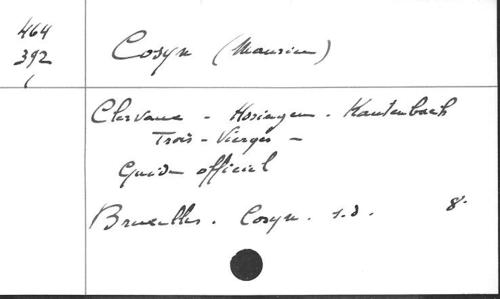 464
392
Cosyn (Maurice)
Clervaux - Hosingen - Kautenbach
Trois-Vierges -
Guide officiel
Bruxelles. Cosyn. s.d. 8.